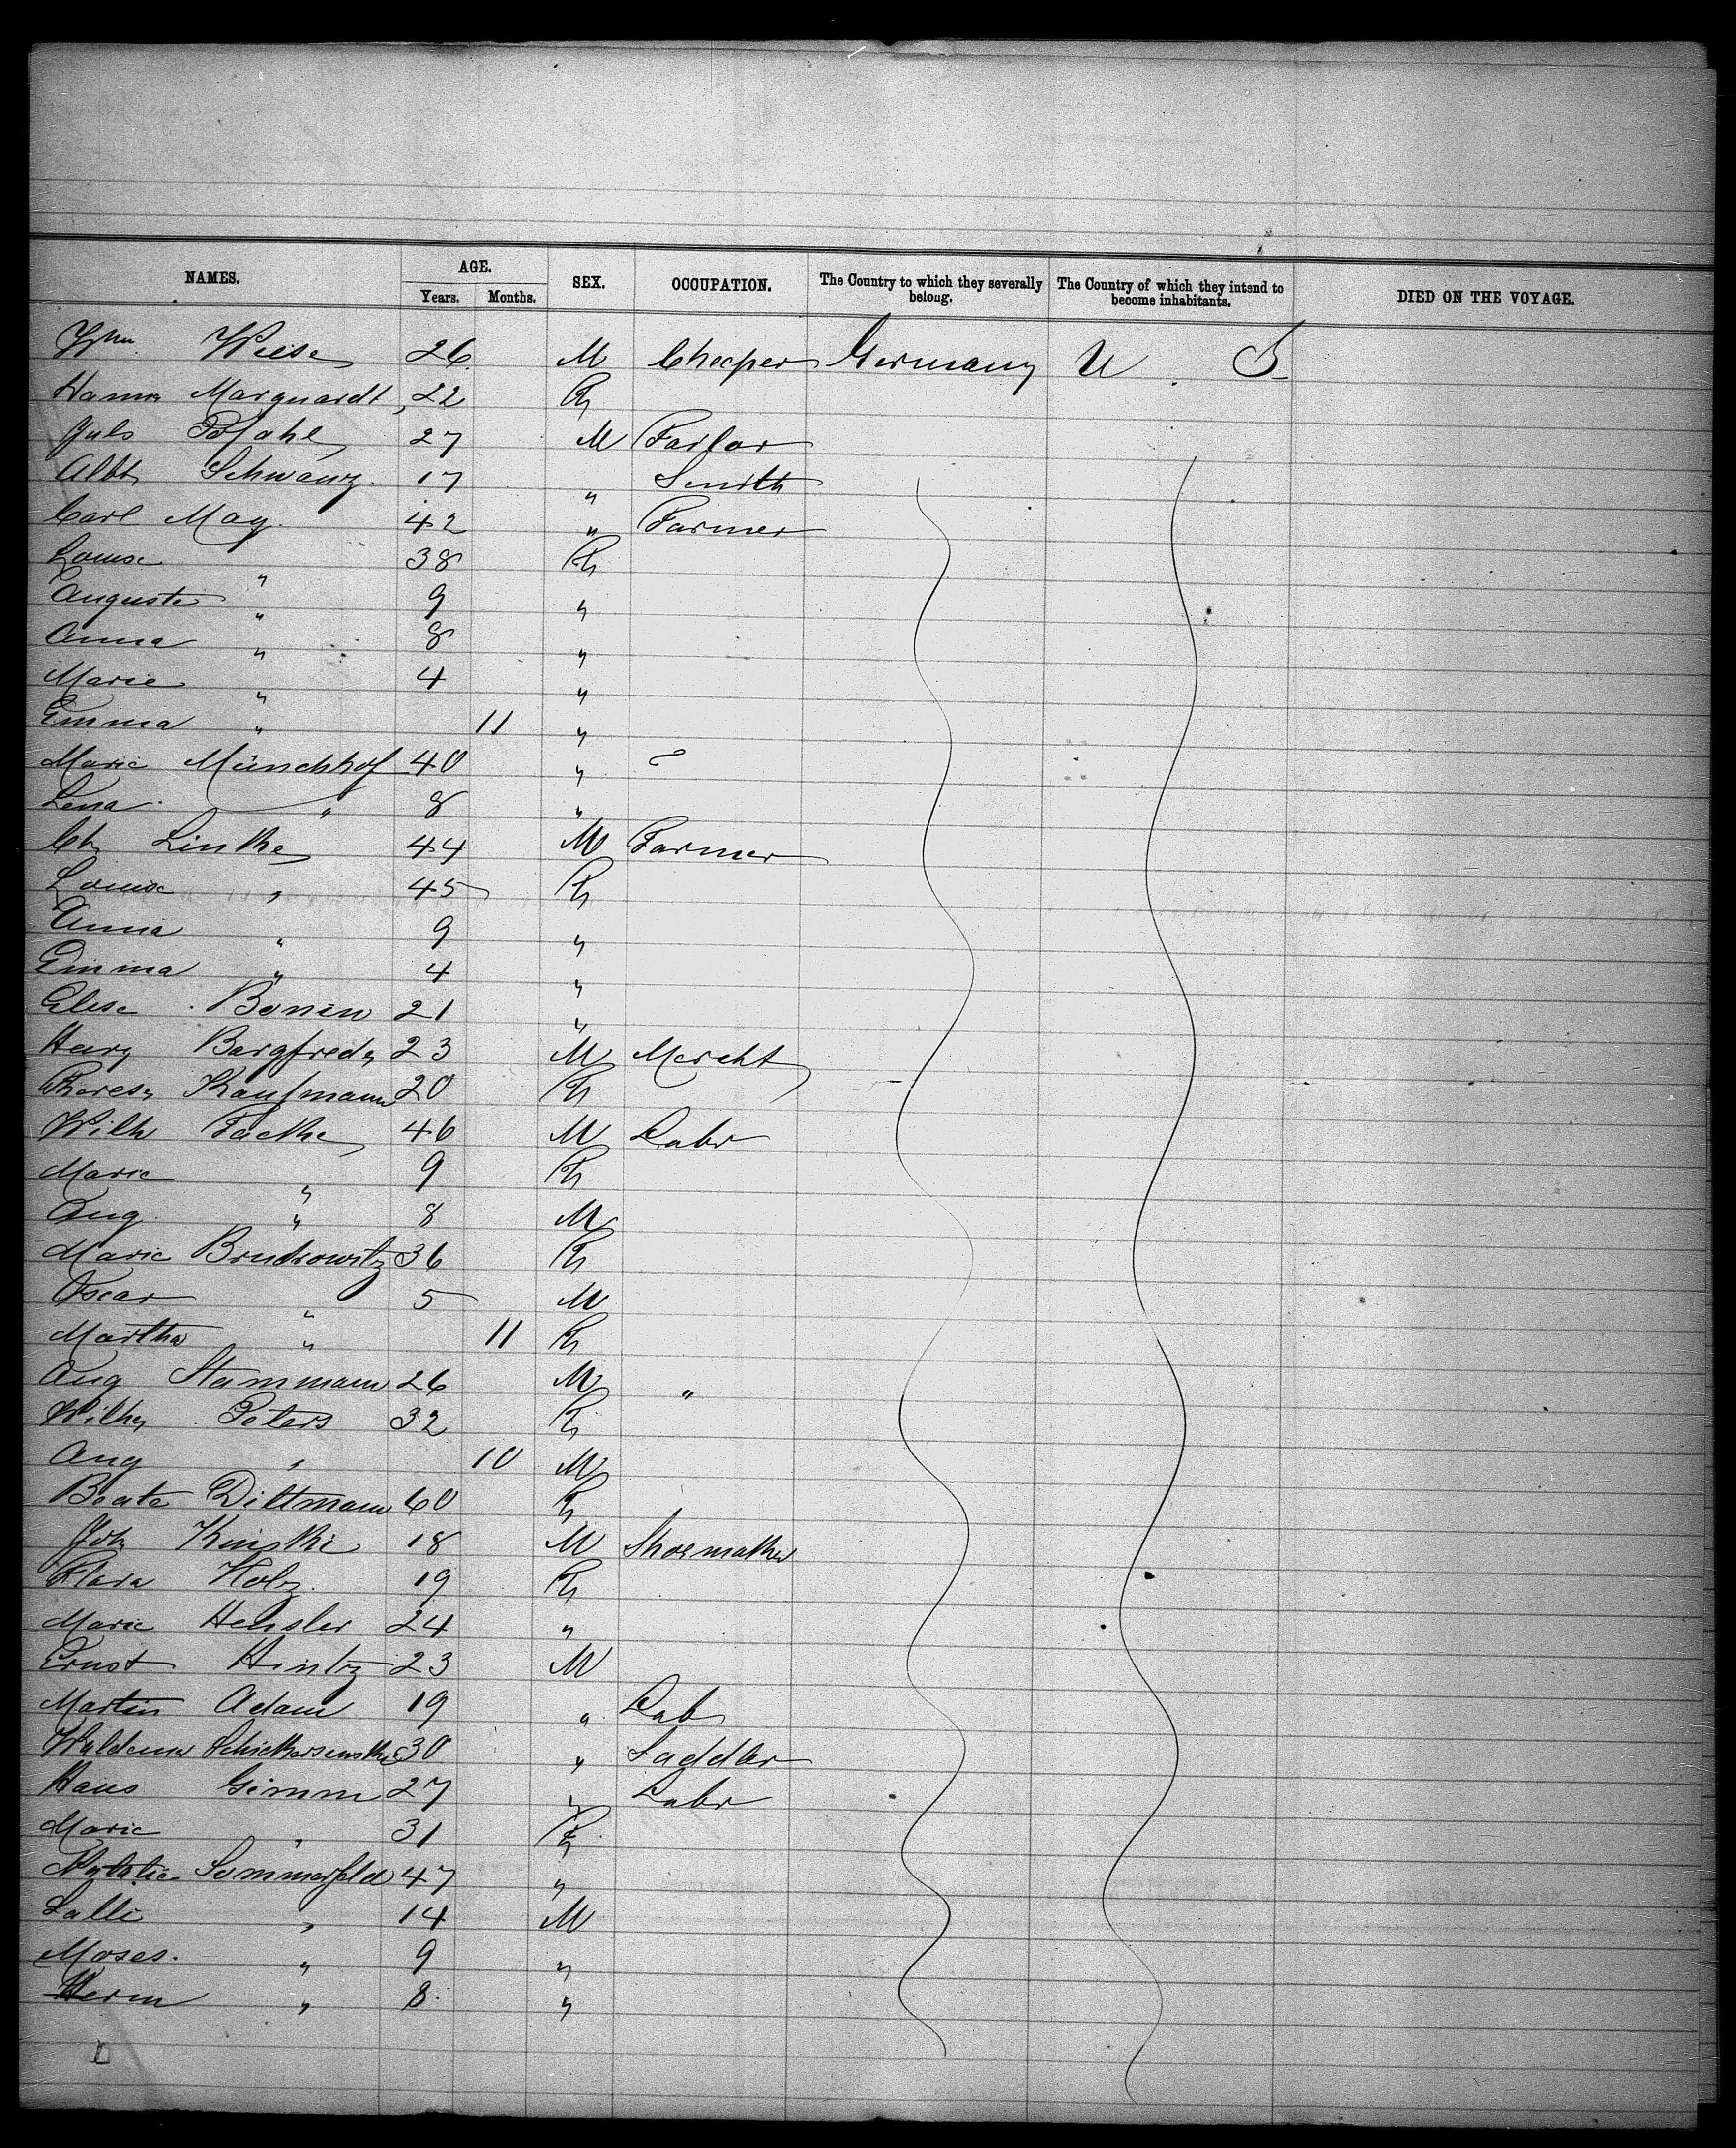 NAMES. AGE. SEX. OCCUPATION. The Country to which they severally belong. The Country of which they intend to become inhabitants. DIED ON THE VOYAGE.
Years. Months.
Wm. Wiese 26 M Germany U. S
Hanna Marquardt 22
Juls Pofahl 27 M Tailor
Albt Schwanz 17 " Smith
Carl May 42 " Farmer
Louise " 38
Auguste " 9 "
Anna " 8 "
Marie " 4 "
Emma " 11 "
Marie Münchhof 40 "
Lena " 8 "
Ch Linke 44 M Farmer
Louise " 45
Anna " 9 "
Emma " 4 "
Elise Bonin 21 "
Henry Bargfrede 23 M Mercht
Therese Kaufmann 20
Wilh Tacke 46 M Labr
Marie " 9
Aug " 8 M
Marie 36
Oscar " 5 M
Martha " 11
Aug Stammann 26 M "
Wilhe Peters 32
Aug " 10 M
Beate Dittmann 60
Joh Kinski 18 M Shoemaker
Clara Holz 19
Marie Hensler 24 "
Ernst Hintz 23 M
Martin Adam 19 " Lab
Waldemar 30 " Saddler
Hans Gimm 27 " Labr
Marie " 31
Sommerfeld 47 "
Salli " 14 M
Moses. " 9 "
Herm " 8 "